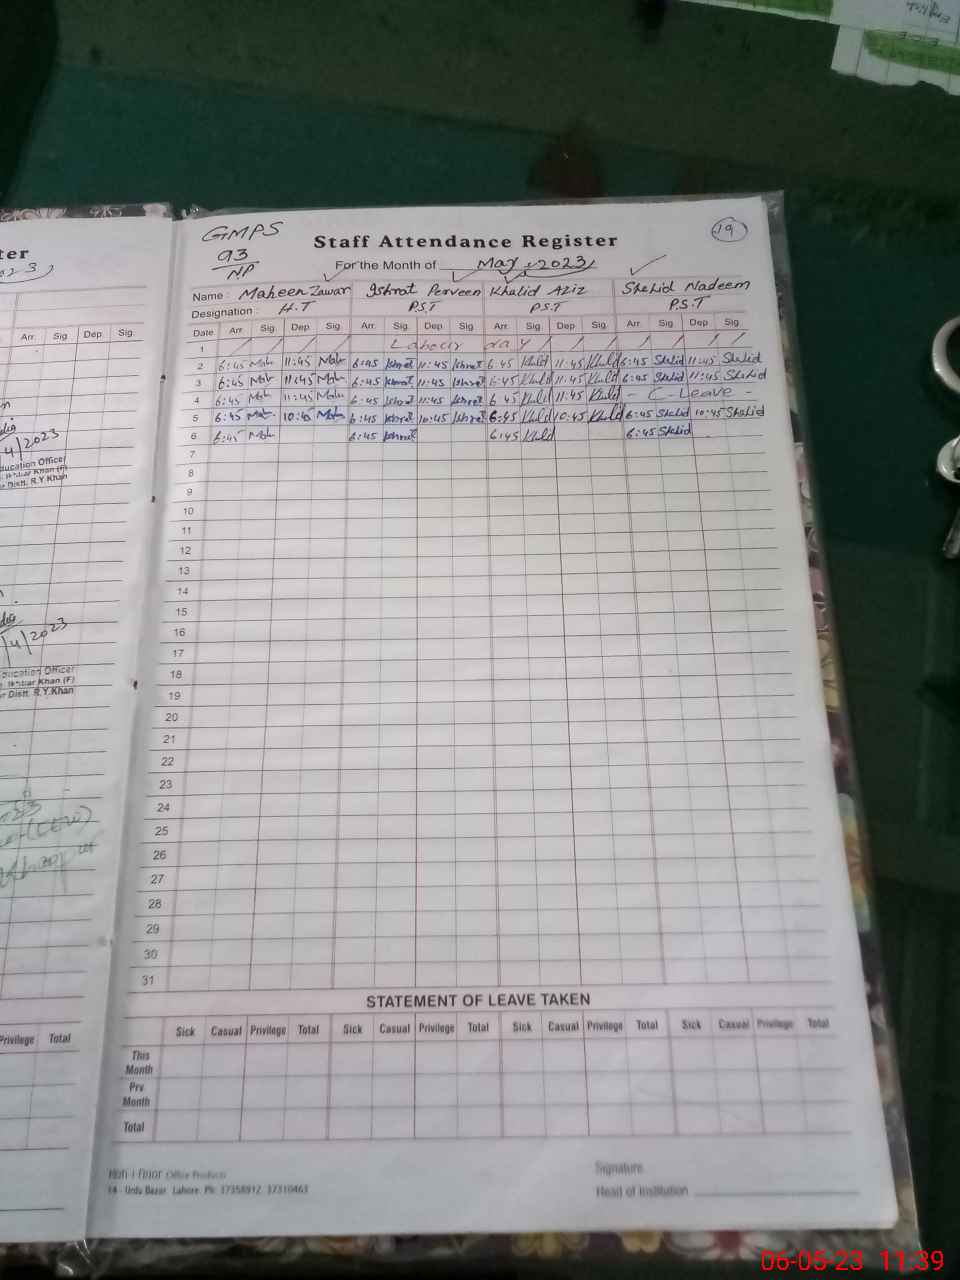 GMPS
93/NP
19
Staff Attendance Register
For the Month of May, 2023
Name: Maheen Zawar Ishrat Perveen Khalid Aziz Shahid Nadeem
Designation: H.T P.S.T P.S.T P.S.T
Date Arr. Sig. Dep. Sig. Arr. Sig. Dep. Sig. Arr. Sig. Dep. Sig. Arr. Sig. Dep. Sig.
1 / / / / Labour day / / / / / /
2 6:45 11:45 6:45 Ishrat 11:45 Ishrat 6:45 Khld 11:45 Khld 6:45 Shahid 11:45 Shahid
3 6:45 11:45 6:45 Ishrat 11:45 Ishrat 6:45 Khld 11:45 Khld 6:45 Shahid 11:45 Shahid
4 6:45 11:45 6:45 Ishrat 11:45 Ishrat 6:45 Khld 11:45 Khld - C-Leave -
5 6:45 10:45 6:45 Ishrat 10:45 Ishrat 6:45 Khld 10:45 Khld 6:45 Shahid 10:45 Shahid
6 6:45 6:45 Ishrat 6:45 Khld 6:45 Shahid
7
8
9
10
11
12
13
14
15
16
17
18
19
20
21
22
23
24
25
26
27
28
29
30
31
STATEMENT OF LEAVE TAKEN
Sick Casual Privilege Total Sick Casual Privilege Total Sick Casual Privilege Total Sick Casual Privilege Total
This Month
Prv Month
Total
Office Products
14 - Urdu Bazar Lahore. Ph: 37358912 37310463
Signature
Head of Institution
ter
Arr. Sig. Dep. Sig.
4/2023
ducation Officer
Khan (F)
Distt. R.Y.Khan
/4/2023
ducation Officer
Khan (F)
Distt. R.Y.Khan
Privilege Total
06-05-23 11:39